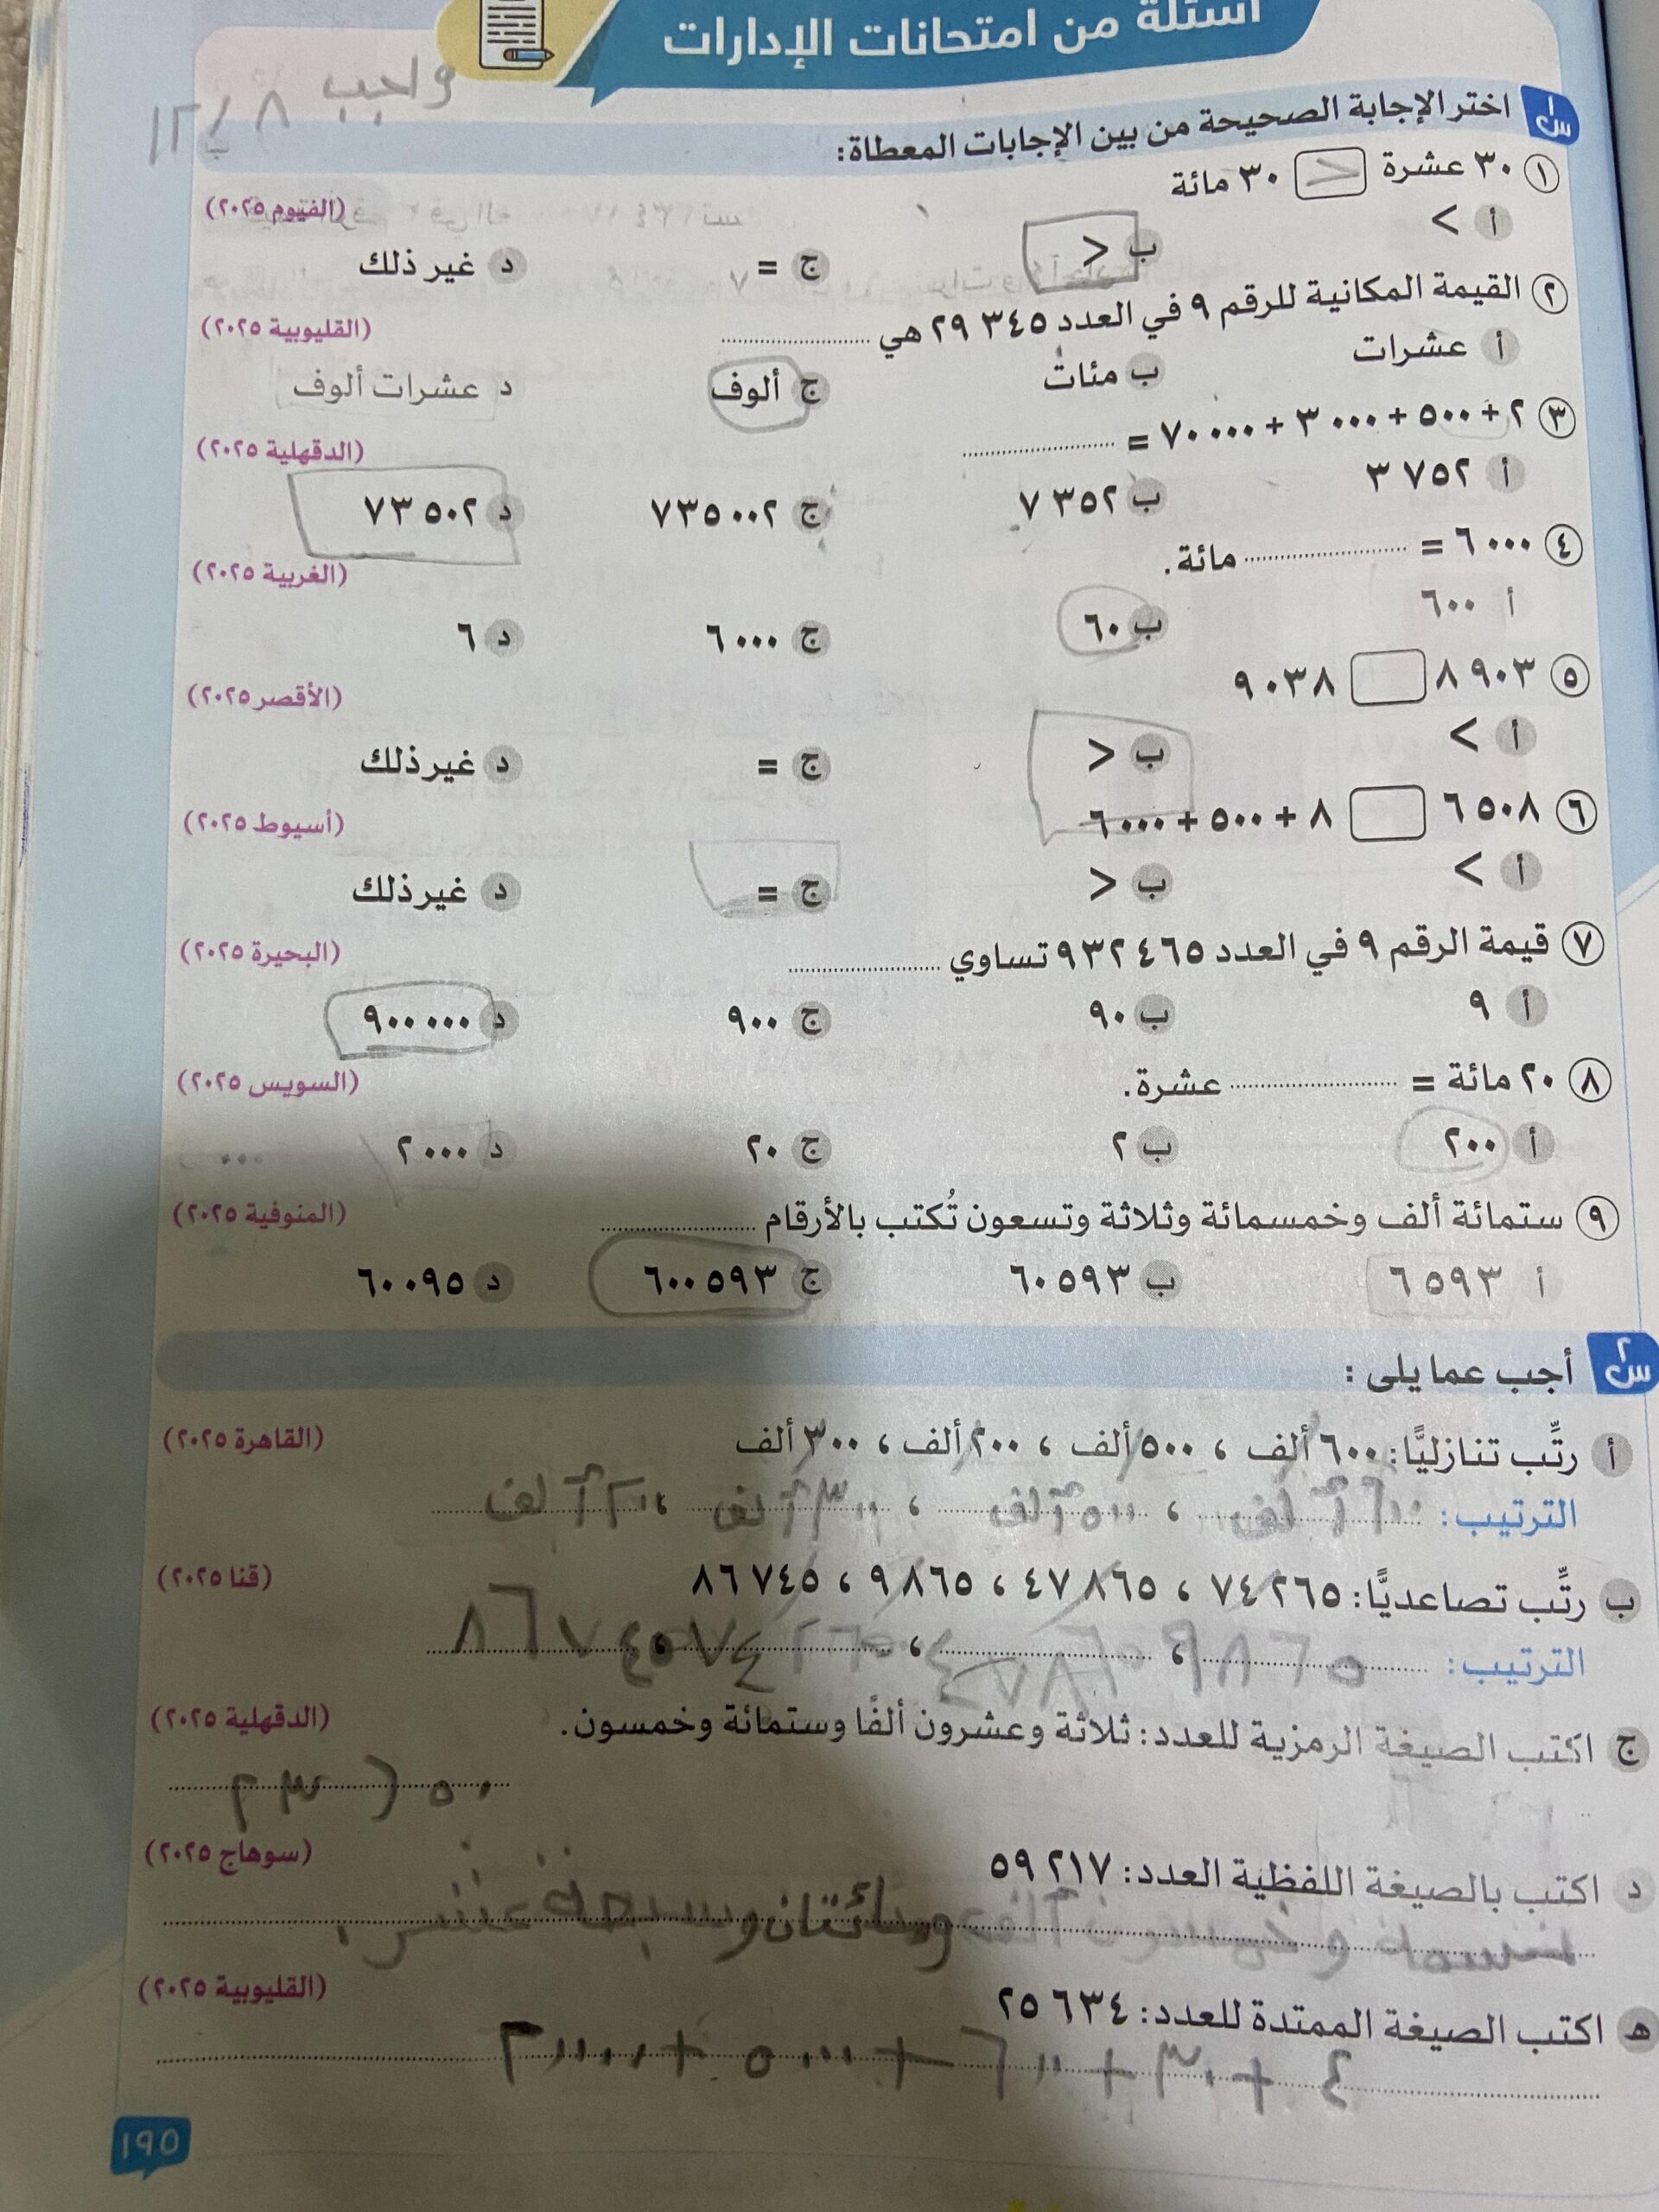 أسئلة من امتحانات الإدارات
واجب ١٢/٨
س١ اختر الإجابة الصحيحة من بين الإجابات المعطاة:
١ ٣٠ عشرة < ٣٠ مائة (الفيوم ٢٠٢٥)
أ > ب < ج = د غير ذلك
٢ القيمة المكانية للرقم ٩ في العدد ٣٤٥ ٢٩ هي .................... (القليوبية ٢٠٢٥)
أ عشرات ب مئات ج ألوف د عشرات ألوف
٣ ٢ + ٥٠٠ + ٠٠٠ ٣ + ٠٠٠ ٧٠ = .................... (الدقهلية ٢٠٢٥)
أ ٧٥٢ ٣ ب ٣٥٢ ٧ ج ٠٠٢ ٧٣٥ د ٥٠٢ ٧٣
٤ ٠٠٠ ٦ = .................... مائة. (الغربية ٢٠٢٥)
أ ٦٠٠ ب ٦٠ ج ٠٠٠ ٦ د ٦
٥ ٩٠٣ ٨ ٠٣٨ ٩ (الأقصر ٢٠٢٥)
أ > ب < ج = د غير ذلك
٦ ٥٠٨ ٦ ٨ + ٥٠٠ + ٠٠٠ ٦ (أسيوط ٢٠٢٥)
أ > ب < ج = د غير ذلك
٧ قيمة الرقم ٩ في العدد ٤٦٥ ٩٣٢ تساوي .................... (البحيرة ٢٠٢٥)
أ ٩ ب ٩٠ ج ٩٠٠ د ٠٠٠ ٩٠٠
٨ ٢٠ مائة = .................... عشرة. (السويس ٢٠٢٥)
أ ٢٠٠ ب ٢ ج ٢٠ د ٠٠٠ ٢
٩ ستمائة ألف وخمسمائة وثلاثة وتسعون تُكتب بالأرقام .................... (المنوفية ٢٠٢٥)
أ ٥٩٣ ٦ ب ٥٩٣ ٦٠ ج ٥٩٣ ٦٠٠ د ٠٩٥ ٦٠
س٢ أجب عما يلى :
أ رتِّب تنازليًّا: ٦٠٠ ألف ، ٥٠٠ ألف ، ٢٠٠ ألف ، ٣٠٠ ألف (القاهرة ٢٠٢٥)
الترتيب: ٦٠٠ ألف ، ٥٠٠ ألف ، ٣٠٠ ألف ، ٢٠٠ ألف
ب رتِّب تصاعديًّا: ٢٦٥ ٧٤ ، ٨٦٥ ٤٧ ، ٨٦٥ ٩ ، ٧٤٥ ٨٦ (قنا ٢٠٢٥)
الترتيب:
ج اكتب الصيغة الرمزية للعدد: ثلاثة وعشرون ألفًا وستمائة وخمسون. (الدقهلية ٢٠٢٥)
٢٣٦٥٠
د اكتب بالصيغة اللفظية العدد: ٢١٧ ٥٩ (سوهاج ٢٠٢٥)
تسعة وخمسون ألف ومائتان وسبعة عشر.
هـ اكتب الصيغة الممتدة للعدد: ٦٣٤ ٢٥ (القليوبية ٢٠٢٥)
٤ + ٣٠ + ٦٠٠ + ٥٠٠٠ + ٢٠٠٠٠
١٩٥